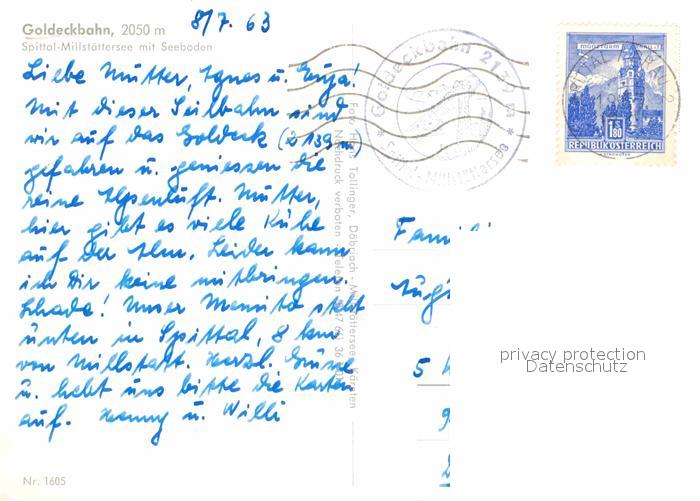 8/7. 63
Goldeckbahn, 2050 m
Spittal-Millstättersee mit Seeboden
Liebe Mutter, Agnes u.
Mit dieser Seilbahn sind
wir auf das Goldeck (2139 m)
gefahren u. geniessen die
reine Alpenluft. Mutter,
hier gibt es viele Kühe
auf der Alm. Leider kann
ich Dir keine mitbringen.
Schade! Unser Manta steht
unten in Spittal, 8 km
von Millstatt. Herzl. Grüsse
u. hebt uns bitte die Karten
auf. Hanny u. Willi
Nr. 1605
Foto Hans Tollinger, Döbriach - Millstättersee, Kärnten
Nachdruck verboten
Goldeckbahn 2139 m
* Spittal-Millstättersee *
1.80
REPUBLIK ÖSTERREICH
Fami
5
privacy protection
Datenschutz